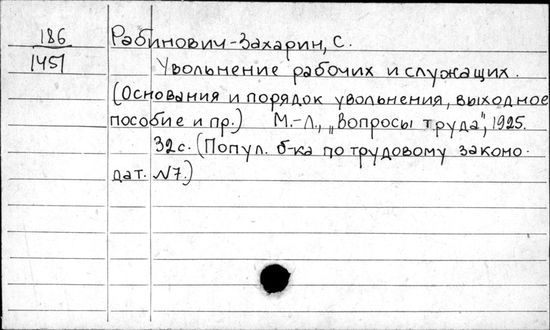 186
1451
Рабинович-Захарин, С.
Увольнение рабочих и служащих.
(Основания и порядок увольнения, выходное
пособие и пр.) М.-Л., „Вопросы труда", 1925.
32с. (Попул. б-ка по трудовому законо-
дат. N7.)